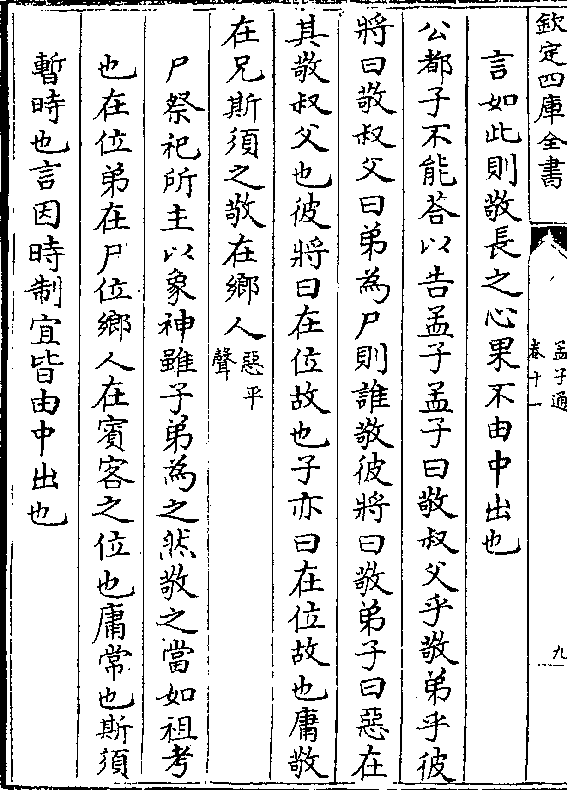 欽定四庫全書
孟子通
卷十一
九
言如此則敬長之心果不由中出也
公都子不能荅以告孟子孟子曰敬叔父乎敬弟乎彼
將曰敬叔父曰弟為尸則誰敬彼將曰敬弟子曰惡在
其敬叔父也彼將曰在位故也子亦曰在位故也庸敬
在兄斯須之敬在鄉人惡平聲
尸祭祀所主以象神雖子弟為之然敬之當如祖考
也在位弟在尸位鄉人在賓客之位也庸常也斯須
暫時也言因時制宜皆由中出也